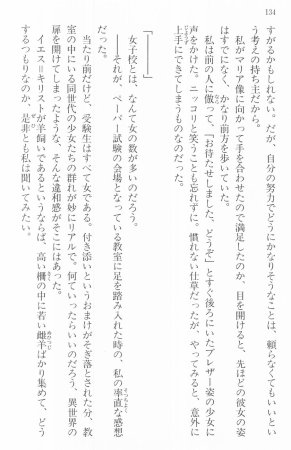 134
すがるかもしれない。だが、自分の努力でどうにかなりそうなことは、頼らなくてもいいとい
う考えの持ち主だから。
私がマリア像に向かって手を合わせたので満足したのか、目を開けると、先ほどの彼女の姿
はすでになく、かなり前方を歩いていた。
私は前の人に倣って、「お待たせしました、どうぞ」とすぐ後ろにいたブレザー姿の少女に
声をかけた。ニッコリと笑うことも忘れずに。慣れない仕草だったが、やってみると、意外に
上手にできてしまうものなのだった。
「――――」
女子校とは、なんて女の数が多いのだろう。
――それが、ペーパー試験の会場となっている教室に足を踏み入れた時の、私の率直な感想
だった。
当たり前だけど、受験生はすべて女である。付き添いというおまけがそぎ落とされた分、教
室の中にいる同世代の少女たちの群れが妙にリアルで。何ていったらいいのだろう、異世界の
扉を開けてしまったような、そんな違和感がそこにはあった。
イエス＝キリストが羊飼いであるというならば、高い柵の中に若い雌羊ばかり集めて、どう
するつもりなのか、是非とも私は聞いてみたい。